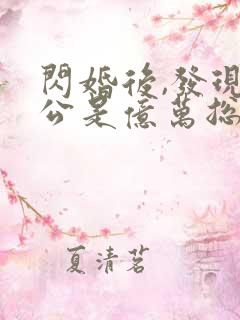 閃婚後,發現
公是億萬總
夏清茗